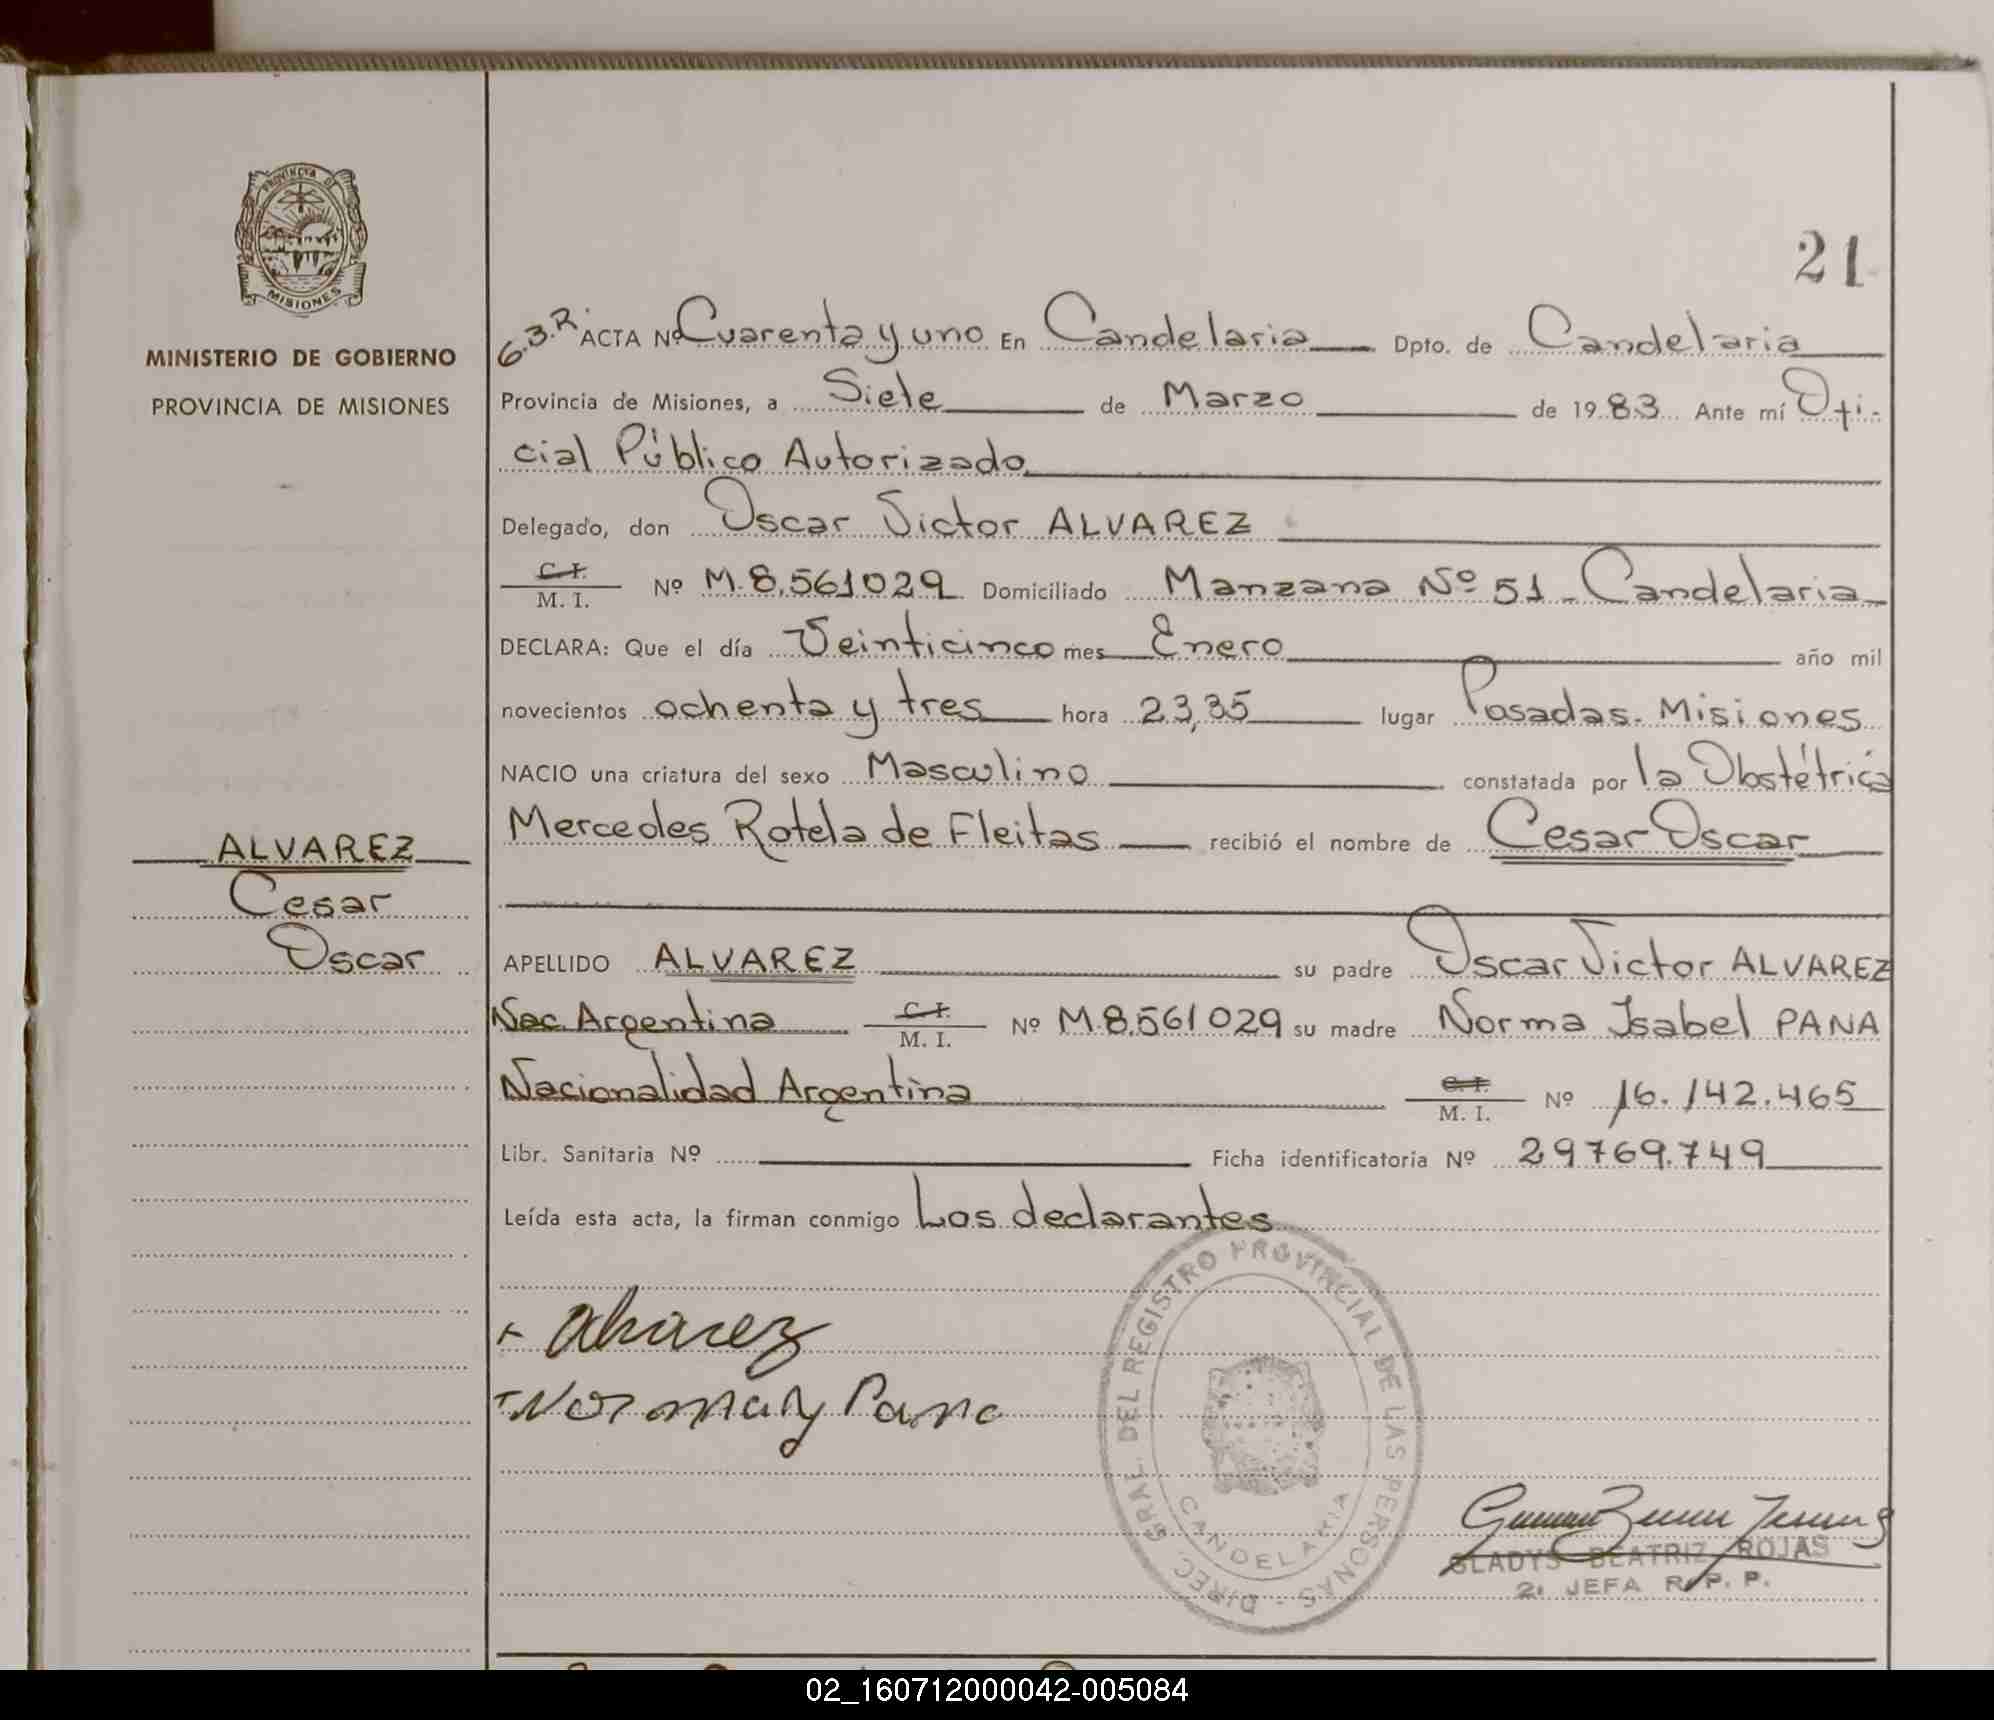 PROVINCIA DE
MISIONES
MINISTERIO DE GOBIERNO
PROVINCIA DE MISIONES
ALVAREZ
Cesar
Oscar
21
6.3.R. ACTA Nº Cuarenta y uno En Candelaria Dpto. de Candelaria
Provincia de Misiones, a Siete de Marzo de 1983 Ante mí Ofi-
cial Público Autorizado
Delegado, don Oscar Victor ALVAREZ
C.I.
M. I. Nº M.8.561029 Domiciliado Manzana Nº 51 - Candelaria
DECLARA: Que el día Veinticinco mes Enero año mil
novecientos ochenta y tres hora 23,35 lugar Posadas. Misiones
NACIO una criatura del sexo Masculino constatada por la Obstétrica
Mercedes Rotela de Fleitas recibió el nombre de Cesar Oscar
APELLIDO ALVAREZ su padre Oscar Victor ALVAREZ
Nac. Argentina C.I.
M. I. Nº M.8.561029 su madre Norma Isabel PANA
Nacionalidad Argentina C.I.
M. I. Nº 16.142.465
Libr. Sanitaria Nº Ficha identificatoria Nº 29769.749
Leída esta acta, la firman conmigo Los declarantes
Alvarez
Norma y Pana
DIREC. GRAL. DEL REGISTRO PROVINCIAL DE LAS PERSONAS -
CANDELARIA
GLADYS BEATRIZ ROJAS
2ª JEFA R. P. P.
02_160712000042-005084